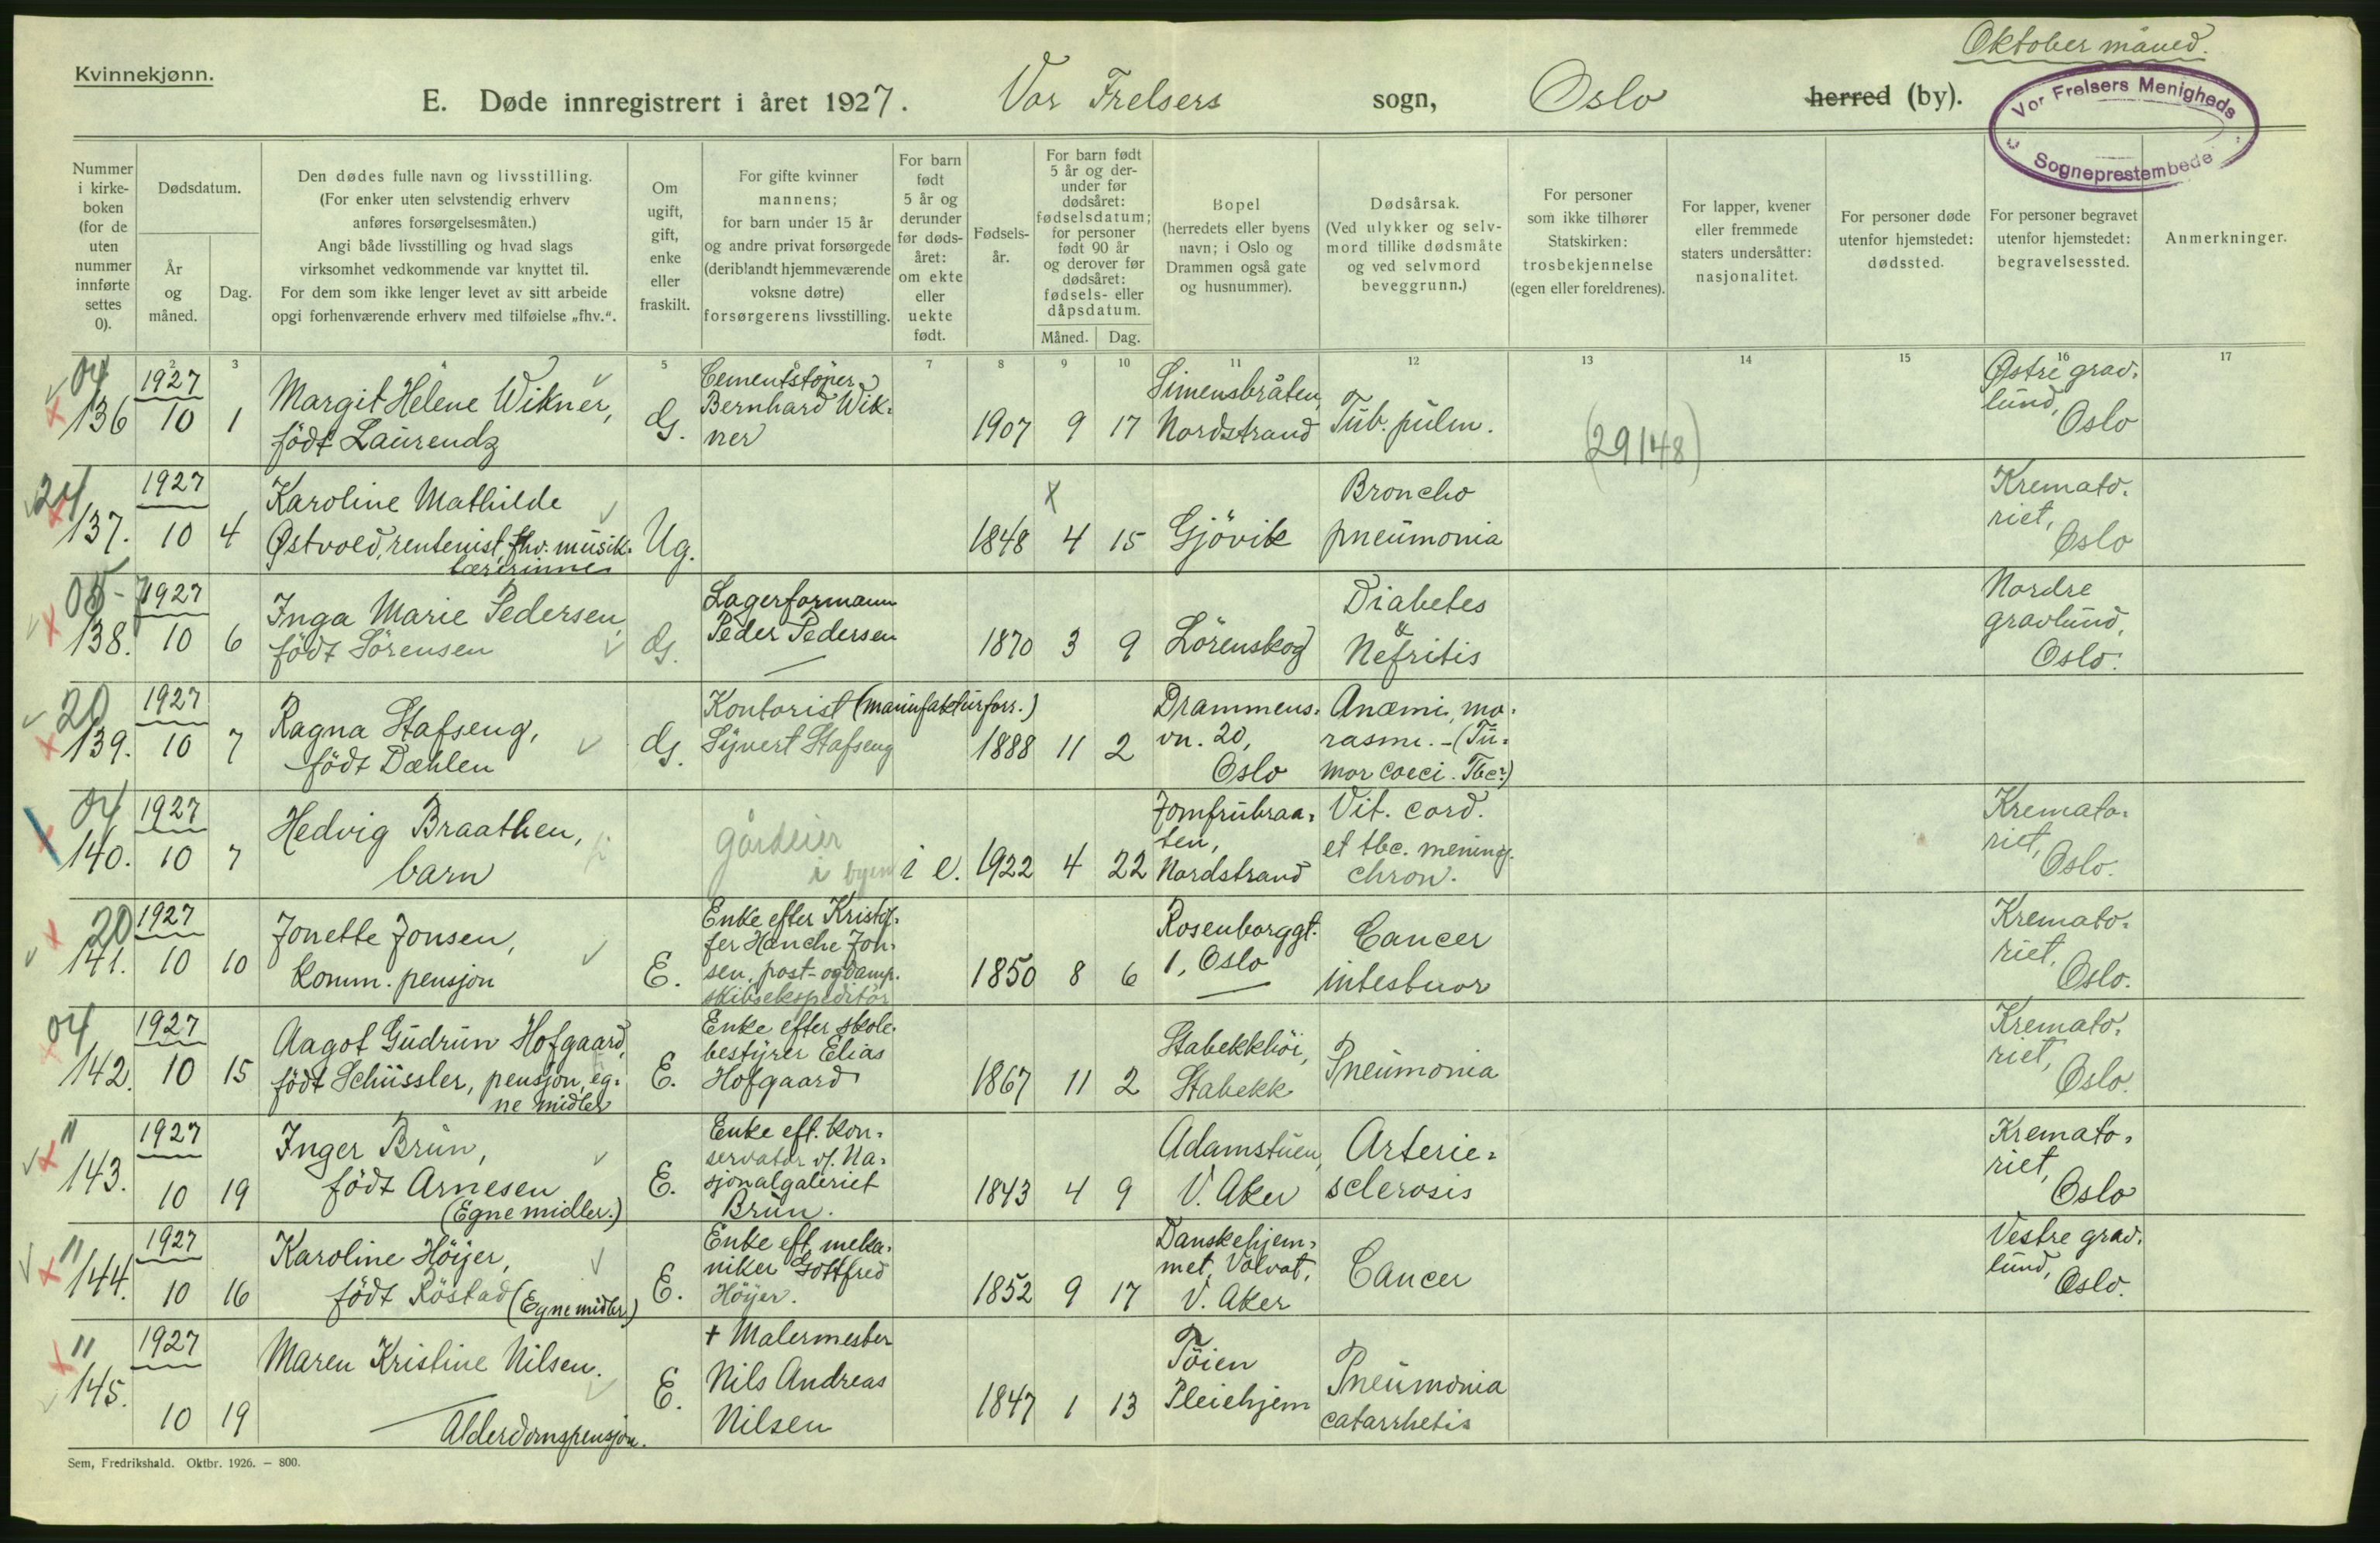 Oktober måned.
Kvinnekjønn.
E. Døde innregistrert i året 1927. Vor Frelsers sogn, Oslo herred (by).
Vor Frelsers Menigheds
Sogneprestembede
Nummer
i kirke-
boken
(for de
uten
nummer
innførte
settes
0).
Dødsdatum.
År
og
måned.
Dag.
Den dødes fulle navn og livsstilling.
(For enker uten selvstendig erhverv
anføres forsørgelsesmåten.)
Angi både livsstilling og hvad slags
virksomhet vedkommende var knyttet til.
For dem som ikke lenger levet av sitt arbeide
opgi forhenværende erhverv med tilføielse „fhv.“.
Om
ugift,
gift,
enke
eller
fraskilt.
For gifte kvinner
mannens;
for barn under 15 år
og andre privat forsørgede
(deriblandt hjemmeværende
voksne døtre)
forsørgerens livsstilling.
For barn
født
5 år og
derunder
før døds-
året:
om ekte
eller
uekte
født.
Fødsels-
år.
For barn født
5 år og der-
under før
dødsåret:
fødselsdatum;
for personer
født 90 år
og derover før
dødsåret:
fødsels- eller
dåpsdatum.
Måned. Dag.
Bopel
(herredets eller byens
navn; i Oslo og
Drammen også gate
og husnummer).
Dødsårsak.
(Ved ulykker og selv-
mord tillike dødsmåte
og ved selvmord
beveggrunn.)
For personer
som ikke tilhører
Statskirken:
trosbekjennelse
(egen eller foreldrenes).
For lapper, kvener
eller fremmede
staters undersåtter:
nasjonalitet.
For personer døde
utenfor hjemstedet:
dødssted.
For personer begravet
utenfor hjemstedet:
begravelsessted.
Anmerkninger.
2 3 4 5 7 8 9 10 11 12 13 14 15 16 17
04
136
1927
10 1
Margit Helene Wikner,
født Laurendz
G.
Cementstøper
Bernhard Wik-
ner
1907 9 17
Simensbråten,
Nordstrand
Tub. pulm.
(29148)
Østre grav-
lund,
Oslo
24
137.
1927
10 4
Karoline Mathilde
Østvold, rentenist, fhv. musik-
lærerinne
Ug.
1848 4 15
x
Gjövik
Broncho
pneumonia
Kremato-
riet,
Oslo
05-
138.
1927
10 6
Inga Marie Pedersen,
født Sörensen
G.
Lagerformann
Peder Pedersen
1870 3 9
Lörenskog
Diabetes
&
Nefritis
Nordre
gravlund,
Oslo.
20
139.
1927
10 7
Ragna Stafseng,
født Dæhlen
G.
Kontorist (manufakturforr.)
Syvert Stafseng
1888 11 2
Drammens-
vn. 20,
Oslo
Anæmi, ma-
rasmi. - (Tu-
mor coeci. Tbc?)
04
140.
1927
10 7
Hedvig Braathen,
barn
gårdeier
i byen
i e.
1922 4 22
Jomfrubraa-
ten,
Nordstrand
Vit. cord.
et tbc. mening.
chron.
Kremato-
riet,
Oslo.
20
141.
1927
10 10
Jonette Jonsen,
Komm. pensjon
E.
Enke efter Kristof-
fer Hanche Jon-
sen, post- og damp-
skibsekspeditör
1850 8 6
Rosenborggt.
1, Oslo
Cancer
intestinor
Kremato-
riet,
Oslo.
04
142.
1927
10 15
Aagot Gudrun Hofgaard,
født Schüssler, pensjon, eg-
ne midler
E.
Enke efter skole-
bestyrer Elias
Hofgaard
1867 11 2
Stabekkhöi,
Stabekk
Pneumonia
Kremato-
riet,
Oslo.
11
143.
1927
10 19
Inger Brun,
født Arnesen
(Egne midler.)
E.
Enke eft. kon-
servator v/. Na-
sjonalgaleriet
Brun.
1843 4 9
Adamstuen,
V. Aker
Arterie-
sclerosis
Kremato-
riet,
Oslo
11
144.
1927
10 16
Karoline Höijer,
født Röstad (Egne midler)
E.
Enke eft. meka-
niker Gottfred
Höijer.
1852 9 17
Danskehjem-
met, Volvat,
V. Aker
Cancer
Vestre grav-
lund,
Oslo.
11
145.
1927
10 19
Maren Kristine Nilsen.
Alderdomspensjon.
E.
+ Malermester
Nils Andreas
Nilsen
1847 1 13
Töien
Pleiehjem
Pneumonia
catarrhetis
Sem, Fredrikshald. Oktbr. 1926. — 800.